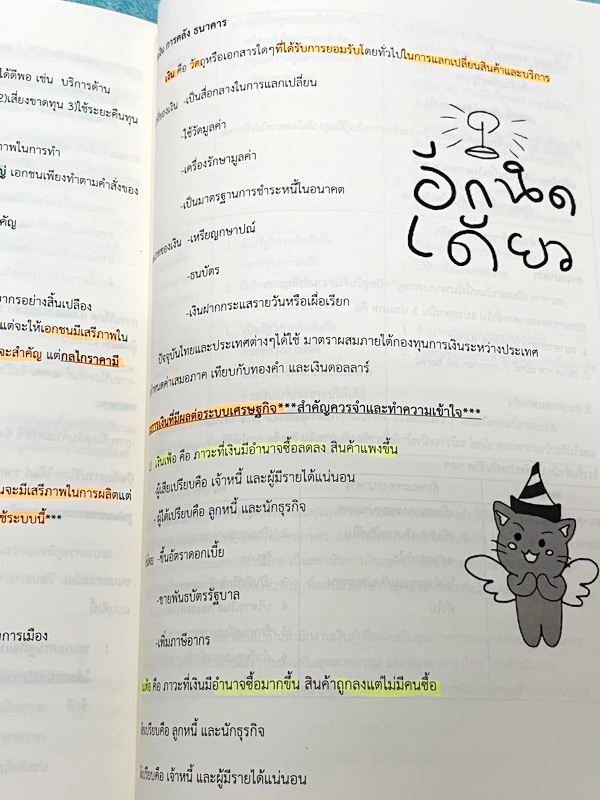 ได้ดีพอ เช่น บริการด้าน
2)เสี่ยงขาดทุน 3)ใช้ระยะคืนทุน
ภาพในการทำ
เอกชนเพียงทำตามคำสั่งของ
ากรอย่างสิ้นเปลือง
แต่จะให้เอกชนมีเสรีภาพใน
จะสำคัญ แต่กลไกราคามี
นจะมีเสรีภาพในการผลิตแต่
ช้ระบบนี้***
การเมือง
การคลัง ธนาคาร
เงิน คือ วัตถุหรือเอกสารใดๆที่ได้รับการยอมรับโดยทั่วไปในการแลกเปลี่ยนสินค้าและบริการ
ของเงิน -เป็นสื่อกลางในการแลกเปลี่ยน
-ใช้วัดมูลค่า
-เครื่องรักษามูลค่า
-เป็นมาตรฐานการชำระหนี้ในอนาคต
ของเงิน -เหรียญกษาปณ์
-ธนบัตร
-เงินฝากกระแสรายวันหรือเผื่อเรียก
ปัจจุบันไทยและประเทศต่างๆได้ใช้ มาตราผสมภายใต้กองทุนการเงินระหว่างประเทศ
หนดค่าเสมอภาค เทียบกับทองคำ และเงินดอลลาร์
การเงินที่มีผลต่อระบบเศรษฐกิจ***สำคัญควรจำและทำความเข้าใจ***
เงินเฟ้อ คือ ภาวะที่เงินมีอำนาจซื้อลดลง สินค้าแพงขึ้น
-ผู้เสียเปรียบคือ เจ้าหนี้ และผู้มีรายได้แน่นอน
-ผู้ได้เปรียบคือ ลูกหนี้ และนักธุรกิจ
-ขึ้นอัตราดอกเบี้ย
-ขายพันธบัตรรัฐบาล
-เพิ่มภาษีอากร
คือ ภาวะที่เงินมีอำนาจซื้อมากขึ้น สินค้าถูกลงแต่ไม่มีคนซื้อ
เปรียบคือ ลูกหนี้ และนักธุรกิจ
เปรียบคือ เจ้าหนี้ และผู้มีรายได้แน่นอน
อีกนิด
เดียว